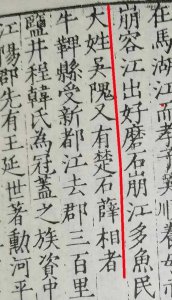 在馬湖江而孝子吳順養母
崩容江出好磨石崩江多魚民
大姓吳隗又有楚石薛相者
牛鞞縣受新都江去郡三百里
鹽井程韓氏為冠蓋之族資中
江陽郡先有王延世著勳河平